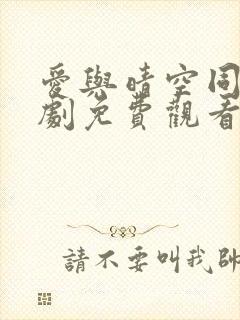 愛與晴空同
劇免費觀看
請不要叫我帥